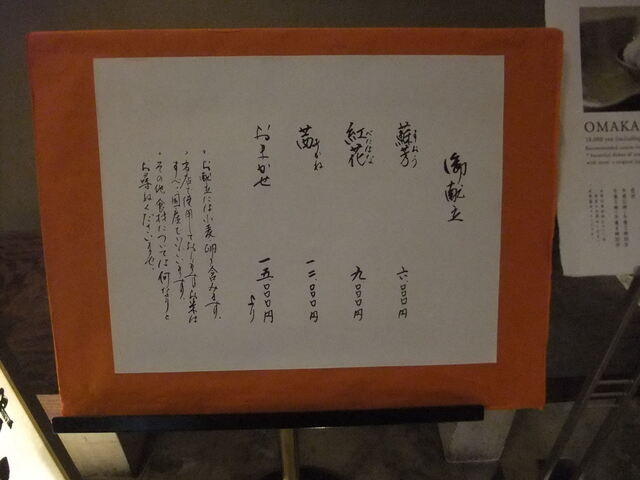 御献立
蘇芳 すおう 六、〇〇〇円
紅花 べにばな 九、〇〇〇円
茜 あかね 一二、〇〇〇円
おまかせ 一五、〇〇〇円より
・お献立には小麦、卵を含みます。
・当店で使用しておりますお米は
すべて国産でございます。
・その他食材については何なりと
お尋ねくださいませ。
OMAKA